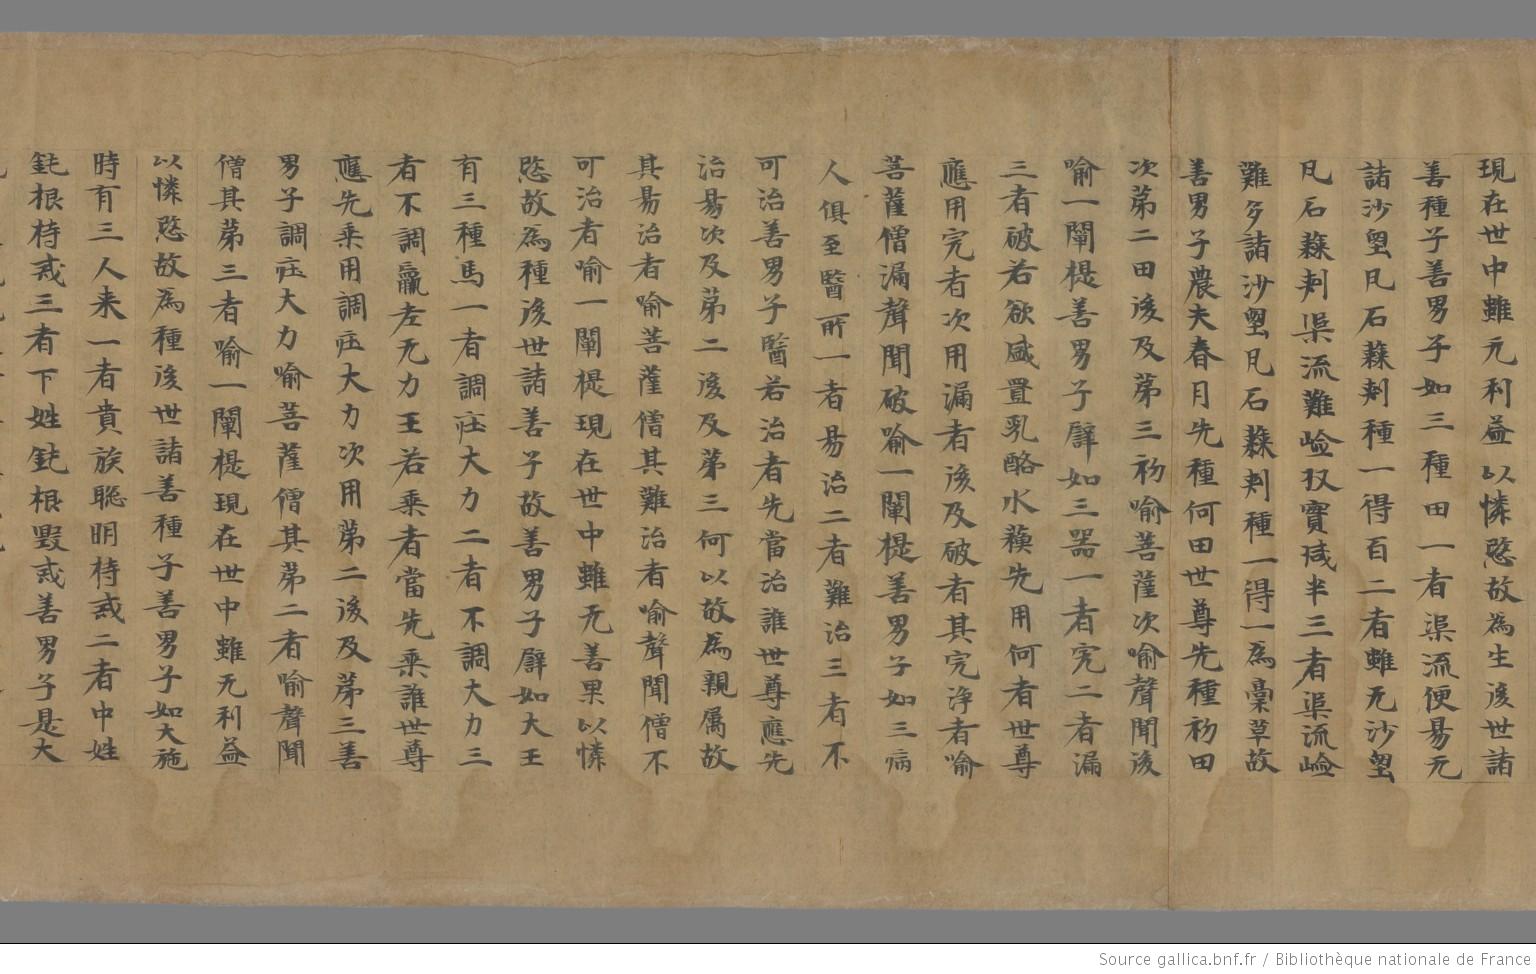 現在世中雖无利益以憐愍故為生後世諸
善種子善男子如三種田一者渠流便易无
諸沙𡋯凡石蕀刾種一得百二者雖无沙𡋯
凡石蕀刾渠流難嶮收實減半三者渠流嶮
難多諸沙𡋯凡石蕀刾種一得一為稾草故
善男子農夫春月先種何田世尊先種初田
次第二田後及第三初喻菩薩次喻聲聞後
喻一闡提善男子譬如三器一者完二者漏
三者破若欲盛置乳酪水蘓先用何者世尊
應用完者次用漏者後及破者其完淨者喻
菩薩僧漏聲聞破喻一闡提善男子如三病
人俱至醫所一者易治二者難治三者不
可治善男子醫若治者先當治誰世尊應先
治易次及第二後及第三何以故為親属故
其易治者喻菩薩僧其難治者喻聲聞僧不
可治者喻一闡提現在世中雖无善果以憐
愍故為種後世諸善子故善男子譬如大王
有三種馬一者調㽵大力二者不調大力三
者不調羸老无力王若乘者當先乘誰世尊
應先乘用調㽵大力次用第二後及第三善
男子調㽵大力喻菩薩僧其第二者喻聲聞
僧其第三者喻一闡提現在世中雖无利益
以憐愍故為種後世諸善種子善男子如大施
時有三人来一者貴族聡明持戒二者中姓
鈍根持戒三者下姓鈍根毀戒善男子是大